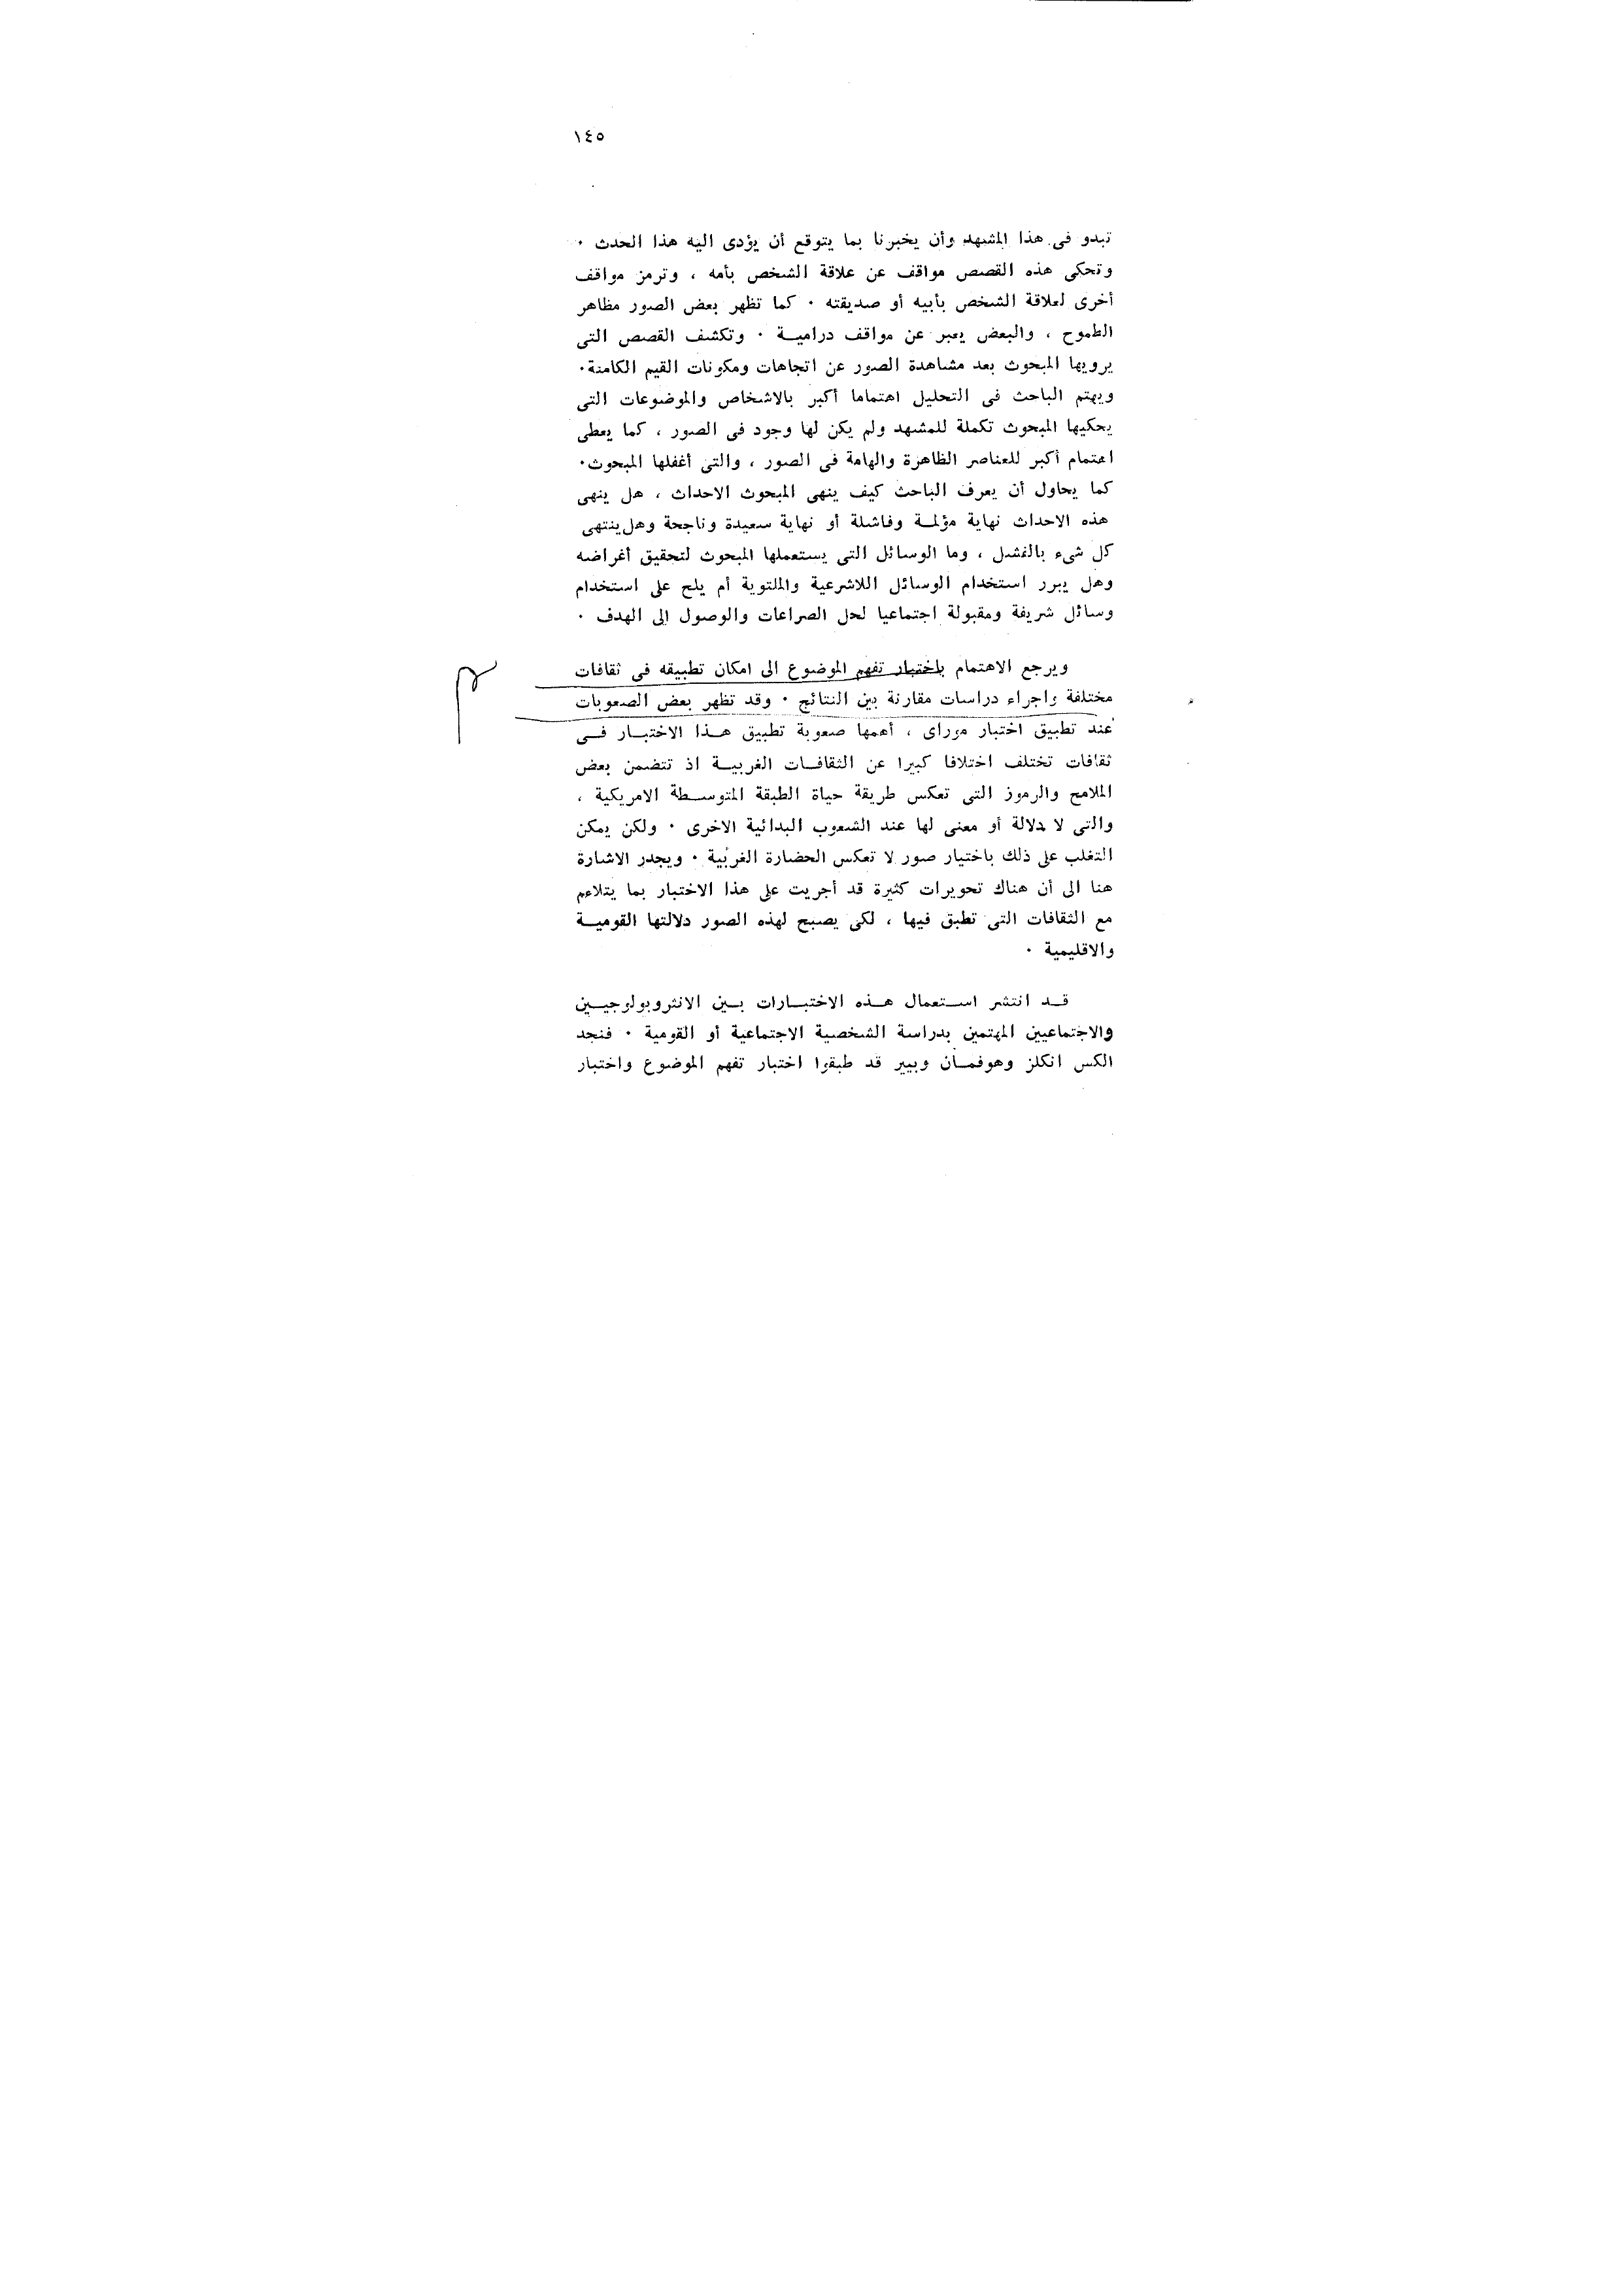 ١٤٥
تبدو فى هذا المشهد وأن يخبرنا بما يتوقع أن يؤدى اليه هذا الحدث ٠
وتحكى هذه القصص مواقف عن علاقة الشخص بأمه ، وترمز مواقف
أخرى لعلاقة الشخص بأبيه أو صديقته ٠ كما تظهر بعض الصور مظاهر
الطموح ، والبعض يعبر عن مواقف دراميـة ٠ وتكشف القصص التى
يرويها المبحوث بعد مشاهدة الصور عن اتجاهات ومكونات القيم الكامنة٠
ويهتم الباحث فى التحليل اهتماما أكبر بالاشخاص والموضوعات التى
يحكيها المبحوث تكملة للمشهد ولم يكن لها وجود فى الصور ، كما يعطى
اهتمام أكبر للعناصر الظاهرة والهامة فى الصور ، والتى أغفلها المبحوث٠
كما يحاول أن يعرف الباحث كيف ينهى المبحوث الاحداث ، هل ينهى
هذه الاحداث نهاية مؤلمة وفاشلة أو نهاية سعيدة وناجحة وهل ينتهى
كل شىء بالفشل ، وما الوسائل التى يستعملها المبحوث لتحقيق أغراضه
وهل يبرر استخدام الوسائل اللاشرعية والملتوية أم يلح على استخدام
وسائل شريفة ومقبولة اجتماعيا لحل الصراعات والوصول الى الهدف ٠
ويرجع الاهتمام باختبار تفهم الموضوع الى امكان تطبيقه فى ثقافات
مختلفة واجراء دراسات مقارنة بين النتائج ٠ وقد تظهر بعض الصعوبات
عند تطبيق اختبار موراى ، أهمها صعوبة تطبيق هـذا الاختبـار فـى
ثقافات تختلف اختلافا كبيرا عن الثقافـات الغربيـة اذ تتضمن بعض
الملامح والرموز التى تعكس طريقة حياة الطبقة المتوسـطة الامريكية ،
والتى لا دلالة أو معنى لها عند الشعوب البدائية الاخرى ٠ ولكن يمكن
التغلب على ذلك باختيار صور لا تعكس الحضارة الغربية ٠ ويجدر الاشارة
هنا الى أن هناك تحويرات كثيرة قد أجريت على هذا الاختبار بما يتلاءم
مع الثقافات التى تطبق فيها ، لكى يصبح لهذه الصور دلالتها القوميـة
والاقليمية ٠
قـد انتشر اسـتعمال هـذه الاختبـارات بـين الانثروبولوجيـين
والاجتماعيين المهتمين بدراسة الشخصية الاجتماعية أو القومية ٠ فنجد
الكس انكلز وهوفمـان وبيير قد طبقوا اختبار تفهم الموضوع واختبار